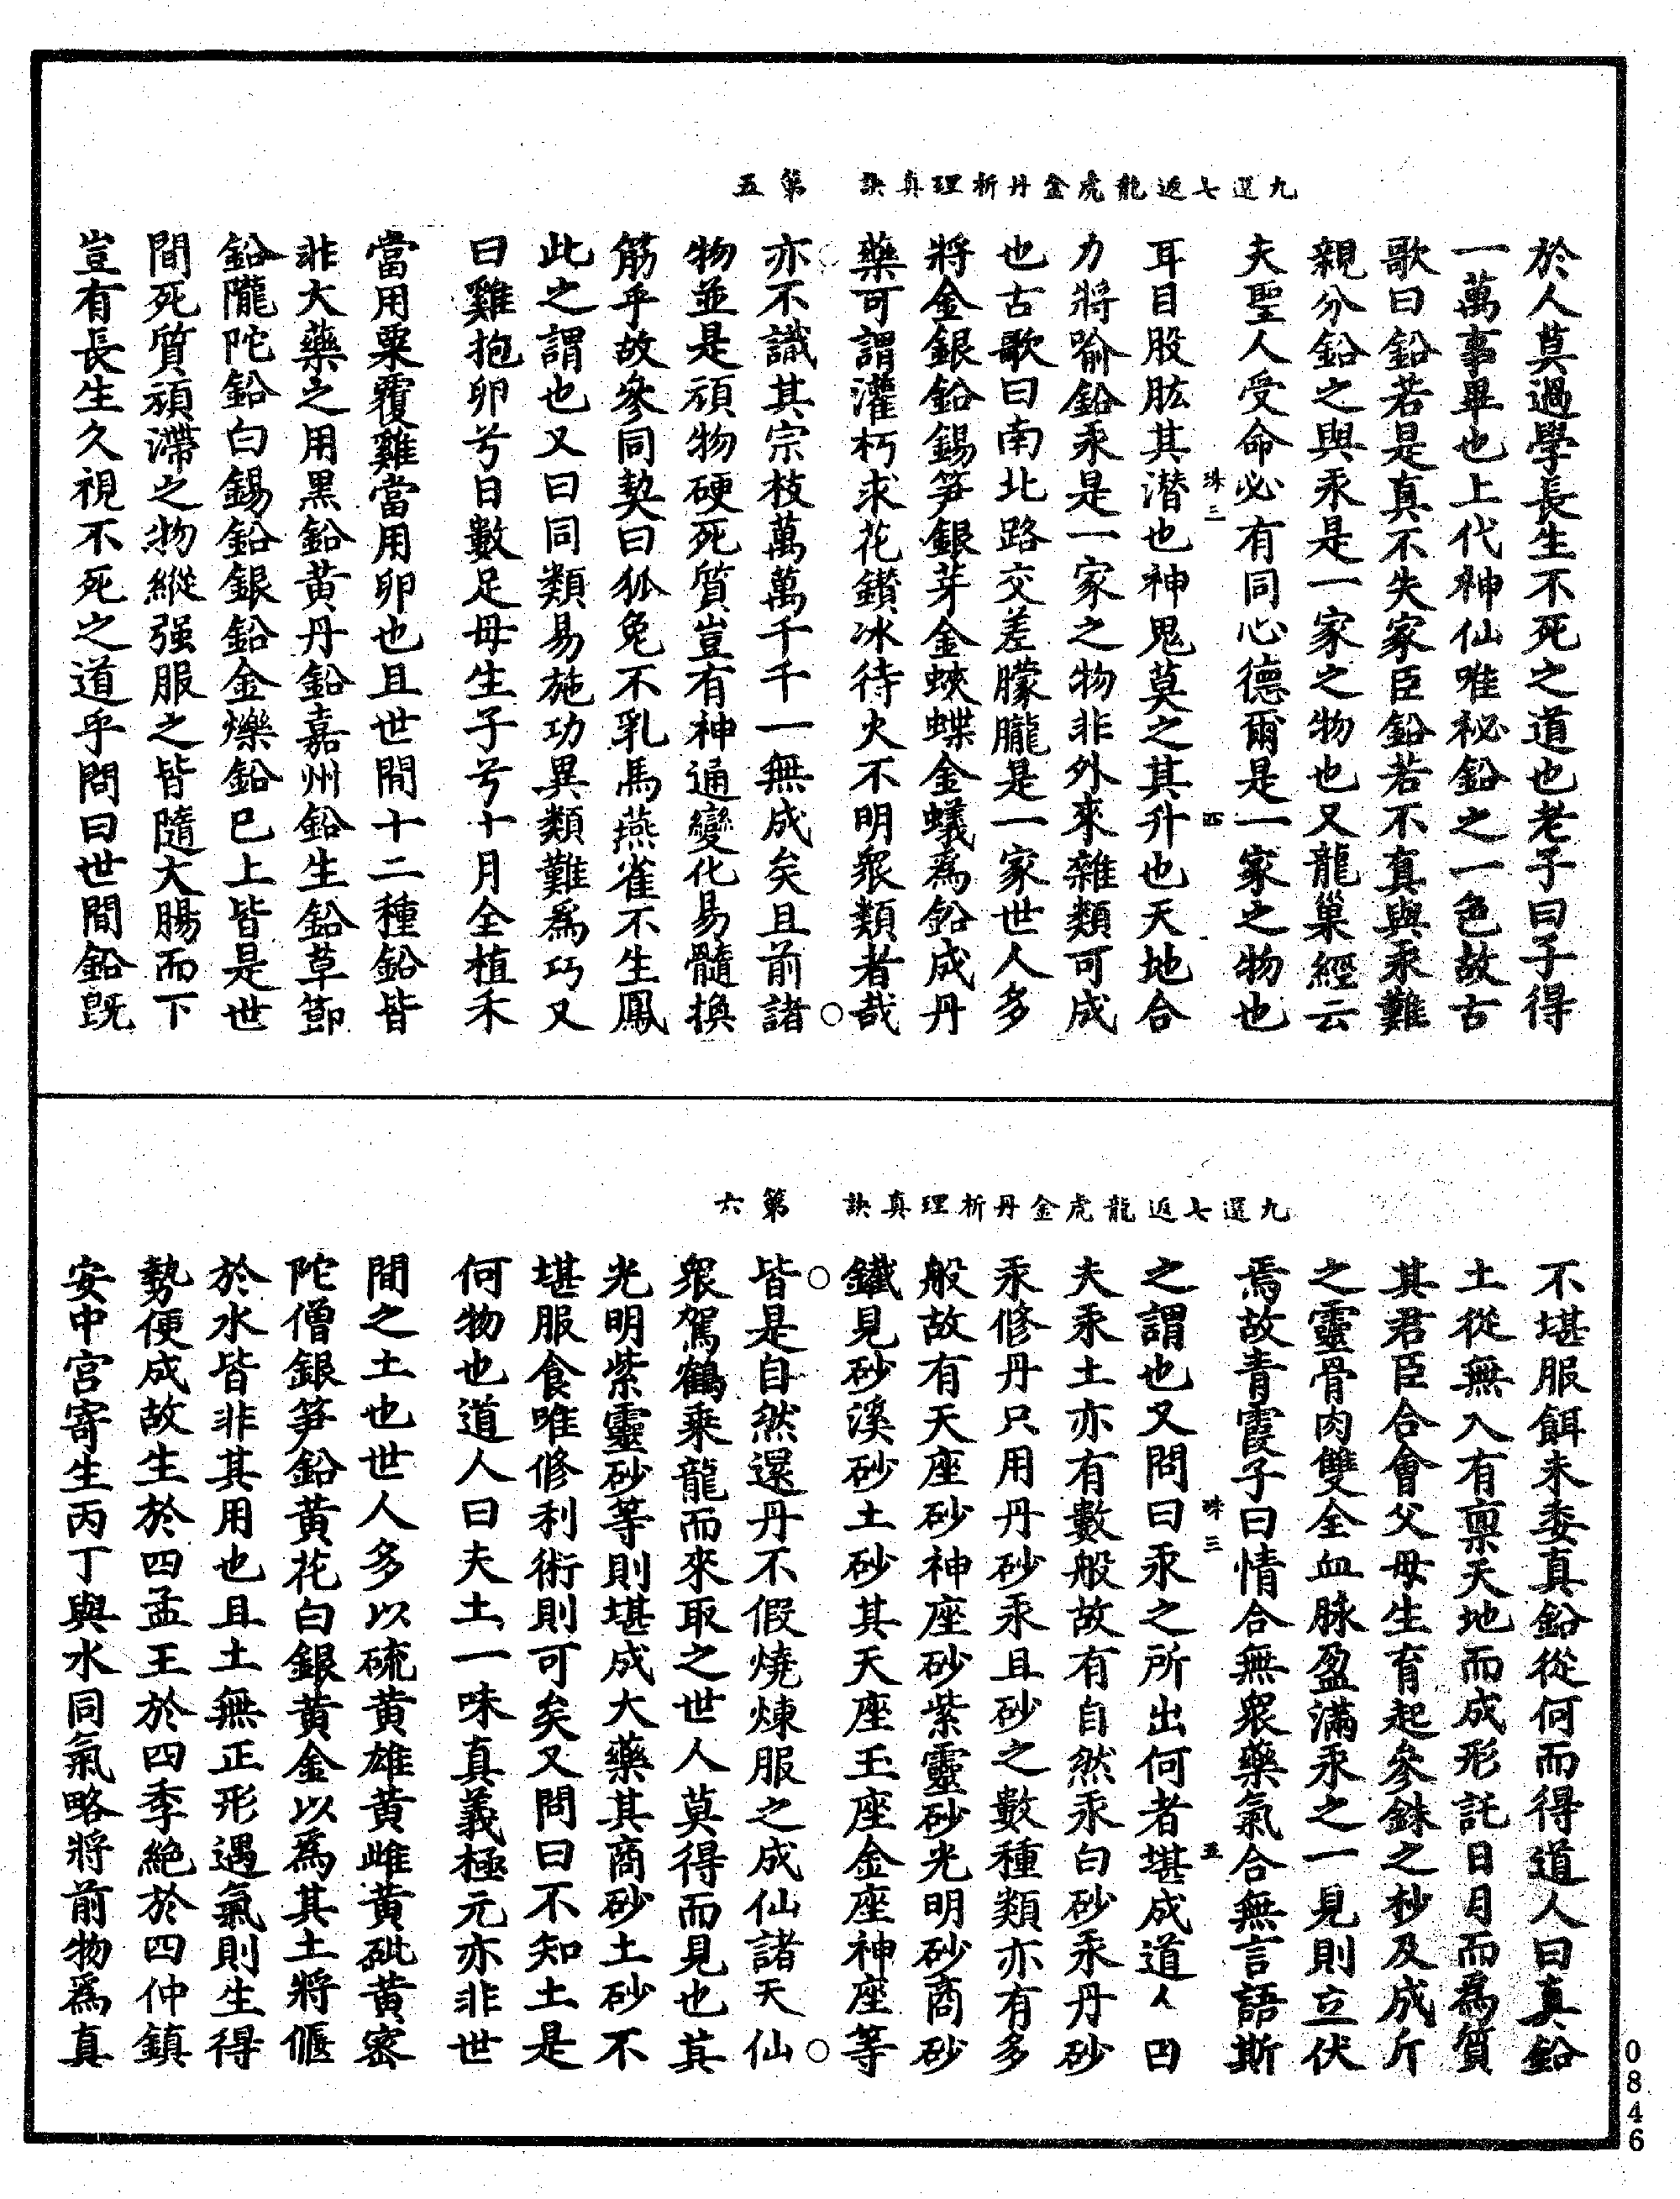 九還七返龍虎金丹析理真訣　第五
於人莫過學長生不死之道也老子曰子得
一萬事畢也上代神仙唯秘鉛之一色故古
歌曰鉛若是真不失家臣鉛若不真與汞難
親分鉛之與汞是一家之物也又龍巢經云
夫聖人受命必有同心德爾是一家之物也
珠三　四
耳目股肱其潛也神鬼莫之其升也天地合
力將喻鉛汞是一家之物非外來雜類可成
也古歌曰南北路交差朦朧是一家世人多
將金銀鉛錫笋銀芽金蛺蝶金蟻為鉛成丹
藥可謂灌朽求花鑚冰待火不明衆類者哉
亦不識其宗枝萬萬千千一無成矣且前諸
物並是頑物硬死質豈有神通變化易髓換
筋乎故參同契曰狐兔不乳馬燕雀不生鳳
此之謂也又曰同類易施功異類難為巧又
曰雞抱卵兮日數足母生子兮十月全植禾
當用粟覆雞當用卵也且世間十二種鉛皆
非大藥之用黑鉛黃丹鉛嘉州鉛生鉛草節
鉛隴陀鉛白錫鉛銀鉛金爍鉛巳上皆是世
間死質頑滯之物縱强服之皆隨大腸而下
豈有長生久視不死之道乎問曰世間鉛既
九還七返龍虎金丹析理真訣　第六
不堪服餌未委真鉛從何而得道人曰真鉛
土從無入有稟天地而成形託日月而為質
其君臣合會父母生育起參銖之杪及成斤
之靈骨肉雙全血脉盈滿汞之一見則立伏
焉故青霞子曰情合無衆藥氣合無言語斯
珠三　五
之謂也又問曰汞之所出何者堪成道人曰
夫汞土亦有數般故有自然汞白砂汞丹砂
汞修丹只用丹砂汞且砂之數種類亦有多
般故有天座砂神座砂紫靈砂光明砂商砂
鐵見砂溪砂土砂其天座玉座金座神座等
皆是自然還丹不假燒煉服之成仙諸天仙
衆駕鶴乘龍而來取之世人莫得而見也其
光明紫靈砂等則堪成大藥其商砂土砂不
堪服食唯修利術則可矣又問曰不知土是
何物也道人曰夫土一味真義極元亦非世
間之土也世人多以硫黃雄黃雌黃砒黃密
陀僧銀笋鉛黃花白銀黃金以為其土將偃
於水皆非其用也且土無正形遇氣則生得
勢便成故生於四孟王於四季絕於四仲鎮
安中宮寄生丙丁與水同氣略將前物為真
0846